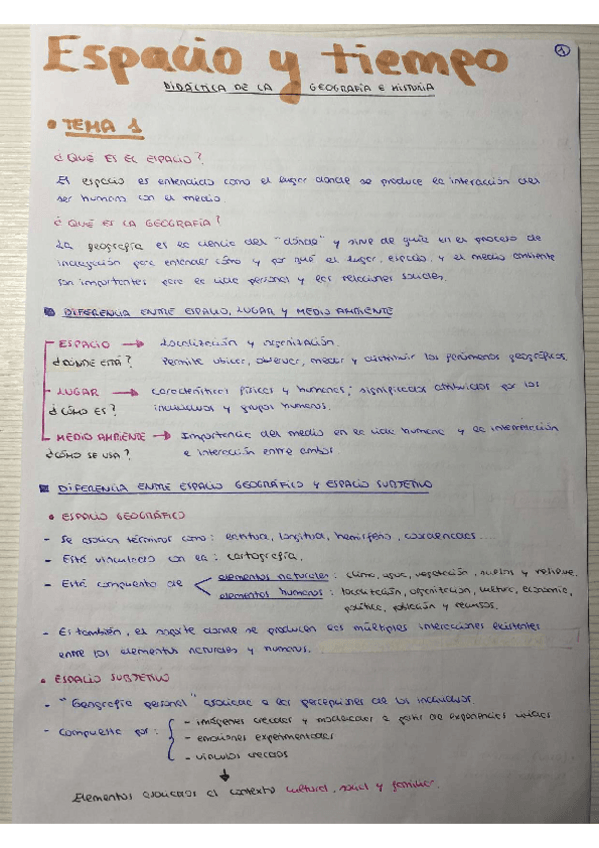 Espacio y tiempo
1
DIDÁCTICA DE LA GEOGRAFÍA E HISTORIA
• TEMA 1
¿QUÉ ES EL ESPACIO?
El espacio es entendido como el lugar donde se produce la interacción del
ser humano con el medio.
¿QUÉ ES LA GEOGRAFÍA?
La geografía es la ciencia del "dónde" y sirve de guía en el proceso de
indagación para entender cómo y por qué el lugar, espacio, y el medio ambiente
son importantes para la vida personal y las relaciones sociales.
DIFERENCIA ENTRE ESPACIO, LUGAR Y MEDIO AMBIENTE
ESPACIO → Localización y organización.
¿DÓNDE ESTÁ? Permite ubicar, observar, medir y distribuir los fenómenos geográficos.
LUGAR → Características físicas y humanas; significados atribuidos por los
¿CÓMO ES? individuos y grupos humanos.
MEDIO AMBIENTE → Importancia del medio en la vida humana y la interrelación
¿CÓMO SE USA? e interacción entre ambos.
DIFERENCIA ENTRE ESPACIO GEOGRÁFICO Y ESPACIO SUBJETIVO
• ESPACIO GEOGRÁFICO
- Se asocian términos como: latitud, longitud, hemisferio, coordenadas...
- Está vinculado con la: cartografía.
- Está compuesto de elementos naturales: clima, agua, vegetación, suelos y relieve.
elementos humanos: localización, organización, cultura, economía,
política, población y recursos.
- Es también, el soporte donde se producen las múltiples interacciones existentes
entre los elementos naturales y humanos.
• ESPACIO SUBJETIVO
- "Geografía personal" asociada a las percepciones de los individuos.
- Compuesta por: - imágenes creadas y modeladas a partir de experiencias vividas
- emociones experimentadas
- vínculos creados
Elementos asociados al contexto cultural, social y familiar.